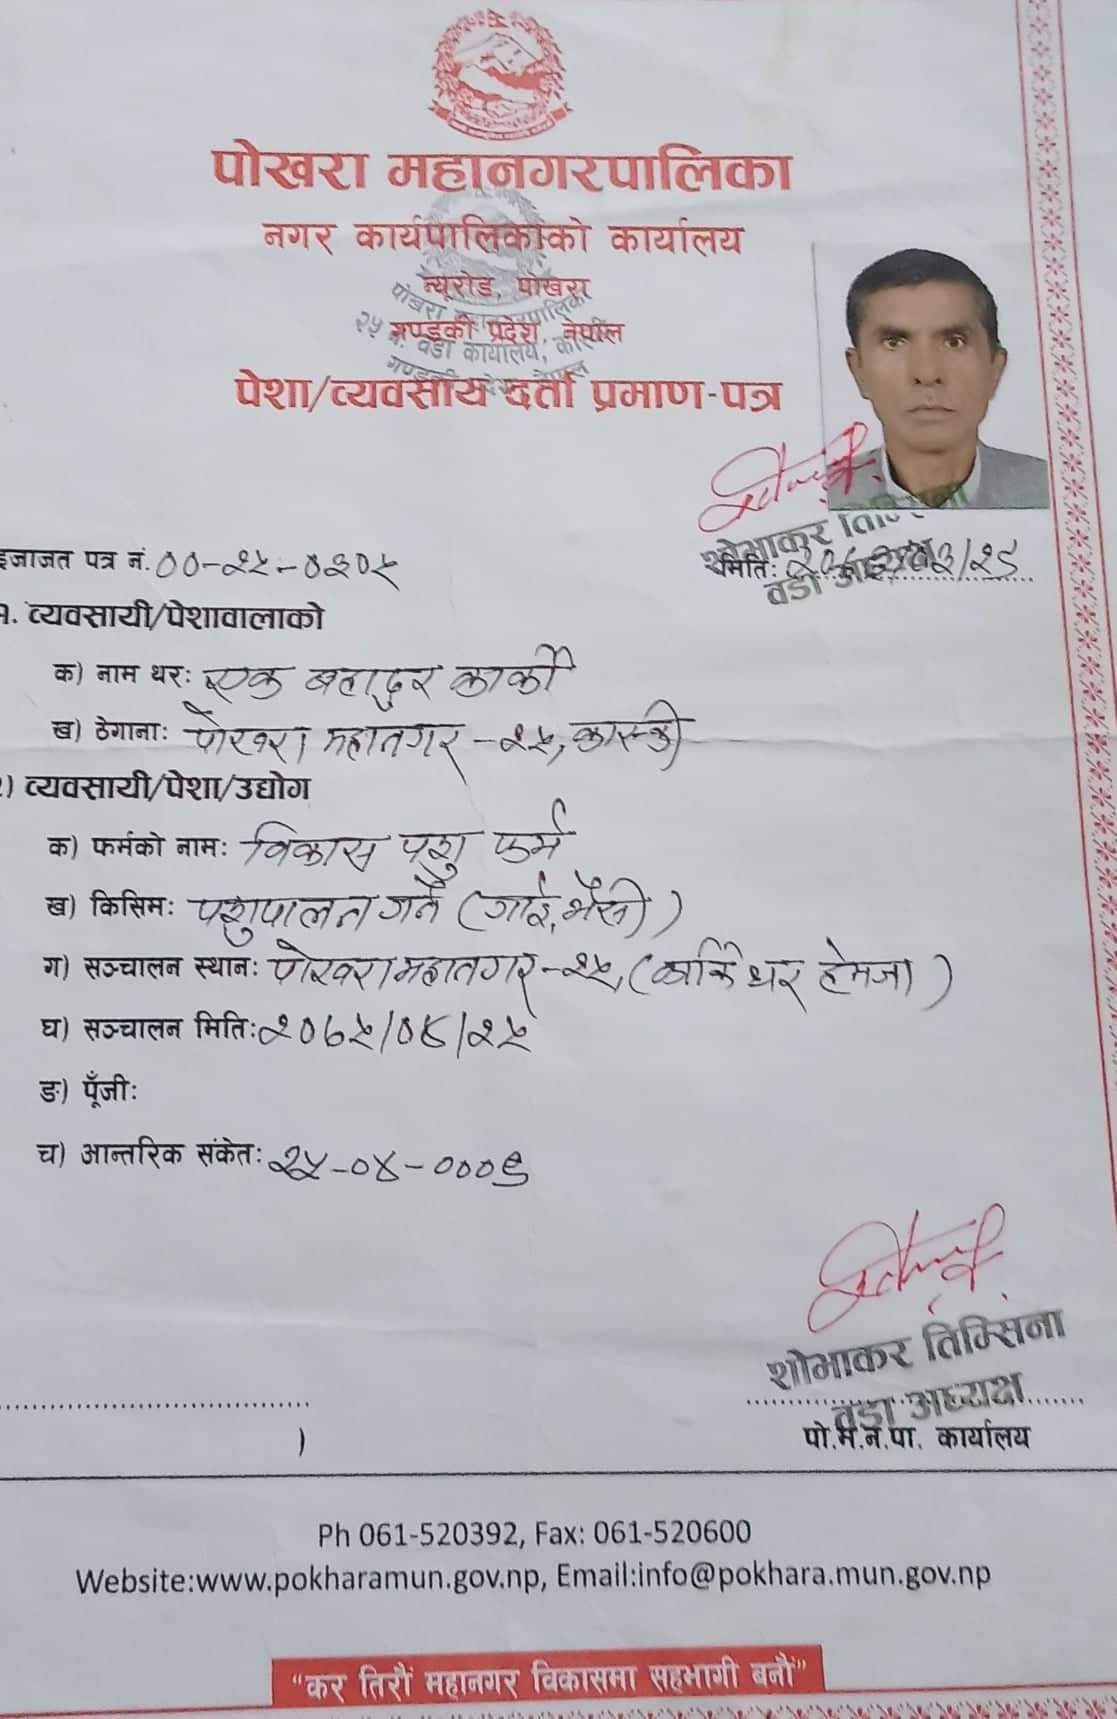 पोखरा महानगरपालिका
नगर कार्यपालिकाको कार्यालय
न्यूरोड, पोखरा
गण्डकी प्रदेश, नेपाल
पेशा/व्यवसाय दर्ता प्रमाण-पत्र
शोभाकर
इजाजत पत्र नं. ००-२५-०३०५
मितिः
१. व्यवसायी/पेशावालाको
क) नाम थरः एक बहादुर कार्की
ख) ठेगानाः पोखरा महानगर -२५, कास्की
२) व्यवसायी/पेशा/उद्योग
क) फर्मको नामः विकास पशु फर्म
ख) किसिमः पशुपालन गर्ने (गाई, भैसी)
ग) सञ्चालन स्थानः पोखरा महानगर -२५, (कार्किधर हेमजा)
घ) सञ्चालन मितिः २०७५/०४/२५
ङ) पूँजीः
च) आन्तरिक संकेतः २५-०४-०००९
शोभाकर तिम्सिना
वडा अध्यक्ष
पो.म.न.पा. कार्यालय
Ph 061-520392, Fax: 061-520600
Website:www.pokharamun.gov.np, Email:info@pokhara.mun.gov.np
“कर तिरौं महानगर विकासमा सहभागी बनौं”